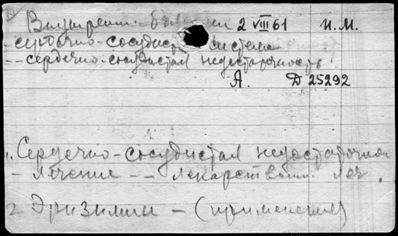 Внутренн. болезни 2 VIII 61 И. М.
- сердечно-сосудист. система
-- сердечно-сосудистая недостаточность
А. Д 25292
1. Сердечно-сосудистая недостаточн
- лечение -- лекарственн. леч.
2 Эризимин - (применение)